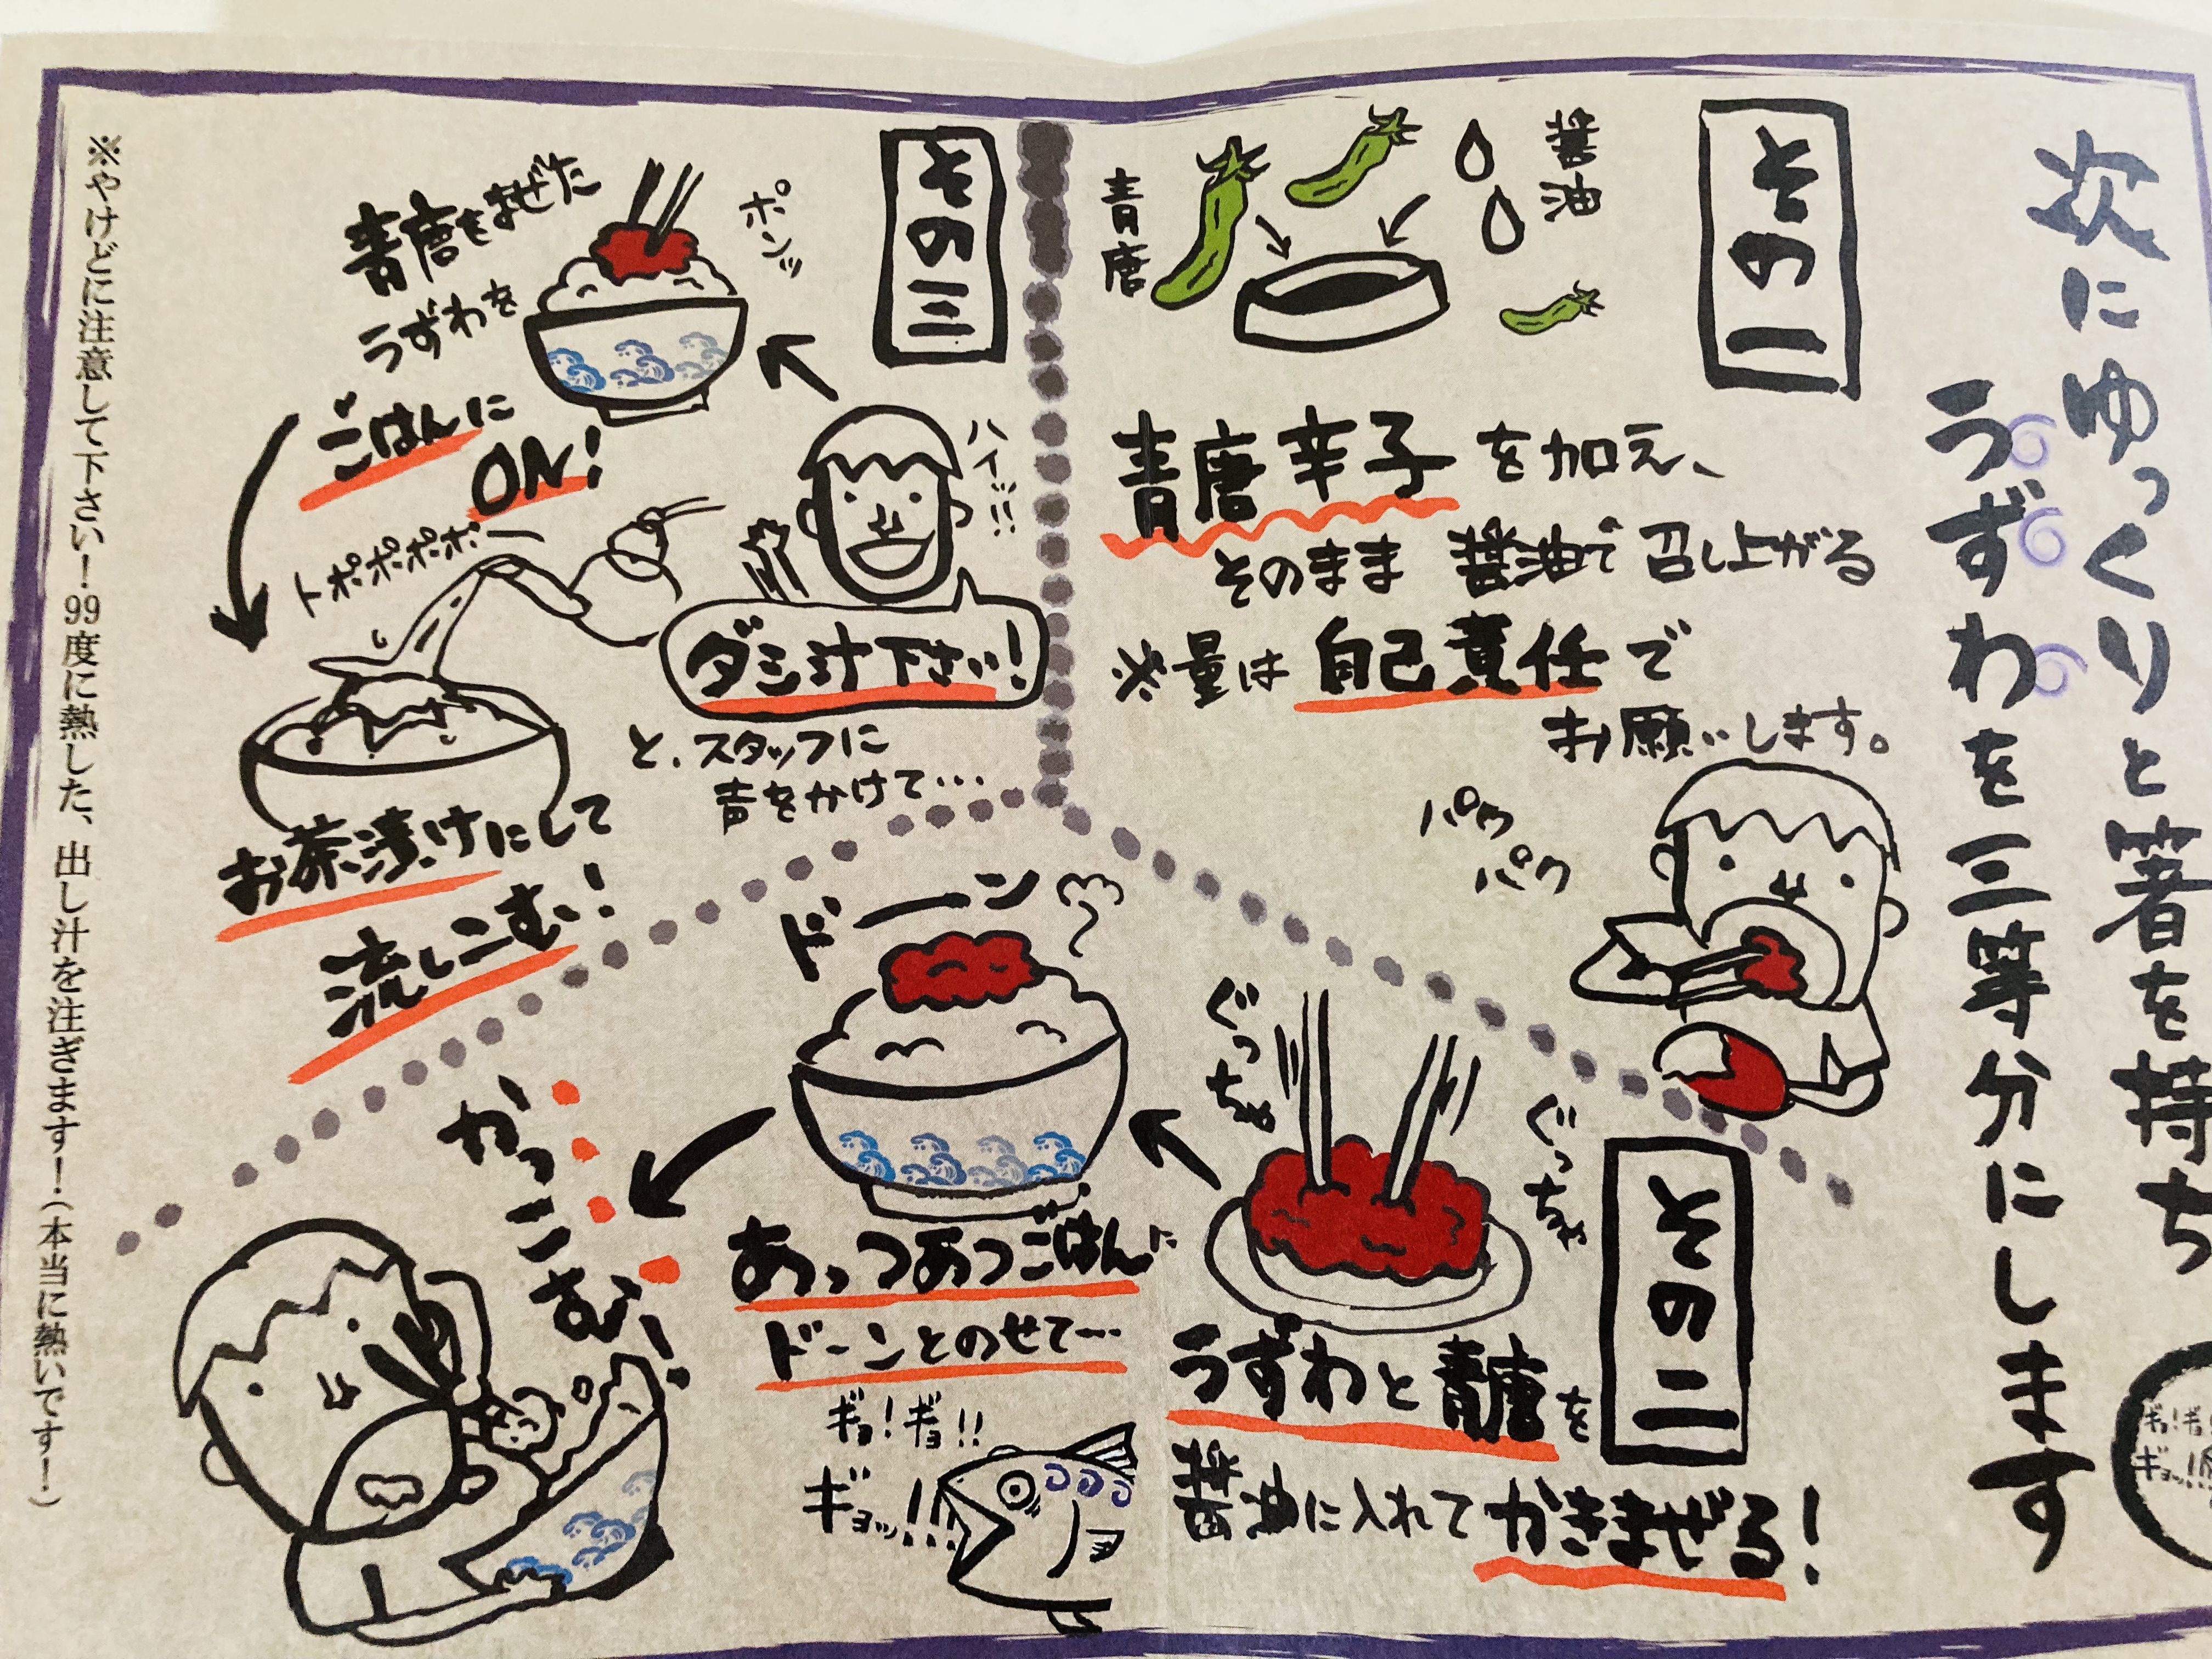 次にゆっくりと箸を持ち
うずわを三等分にします
その一
醤油
青唐
青唐辛子を加え、
そのまま醤油で召し上がる
※量は自己責任で
お願いします。
パク
パク
その二
ぐっちゃ
ぐっちゃ
うずわと青唐を
醤油に入れてかきまぜる!
ドーン
あっつあつごはんに
ドーンとのせて…
ギョ!ギョ!!
ギョッ!!!
かっこむ!
その三
ポンッ
青唐をまぜた
うずわを
ごはんに
ON!
ハイッ!!
ダシ汁下さい!
と、スタッフに
声をかけて…
トポポポポ
お茶漬けにして
流しこむ!
※やけどに注意して下さい!99度に熱した、出し汁を注ぎます!(本当に熱いです!)